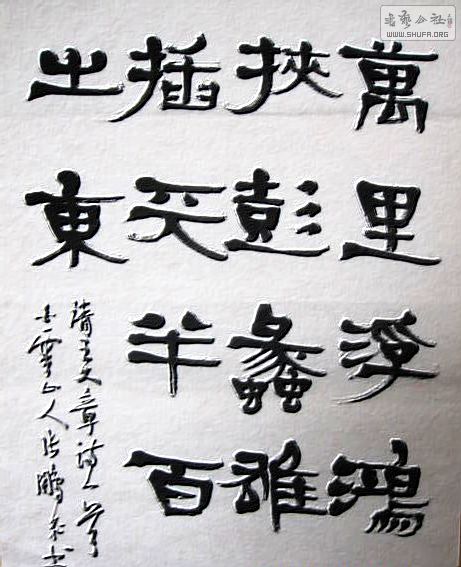 書藝公社
WWW.SHUFA.ORG
萬里浮鴻
挾彭蠡雄
插天半百
之東
文章詩一首
雲山人張鵬書